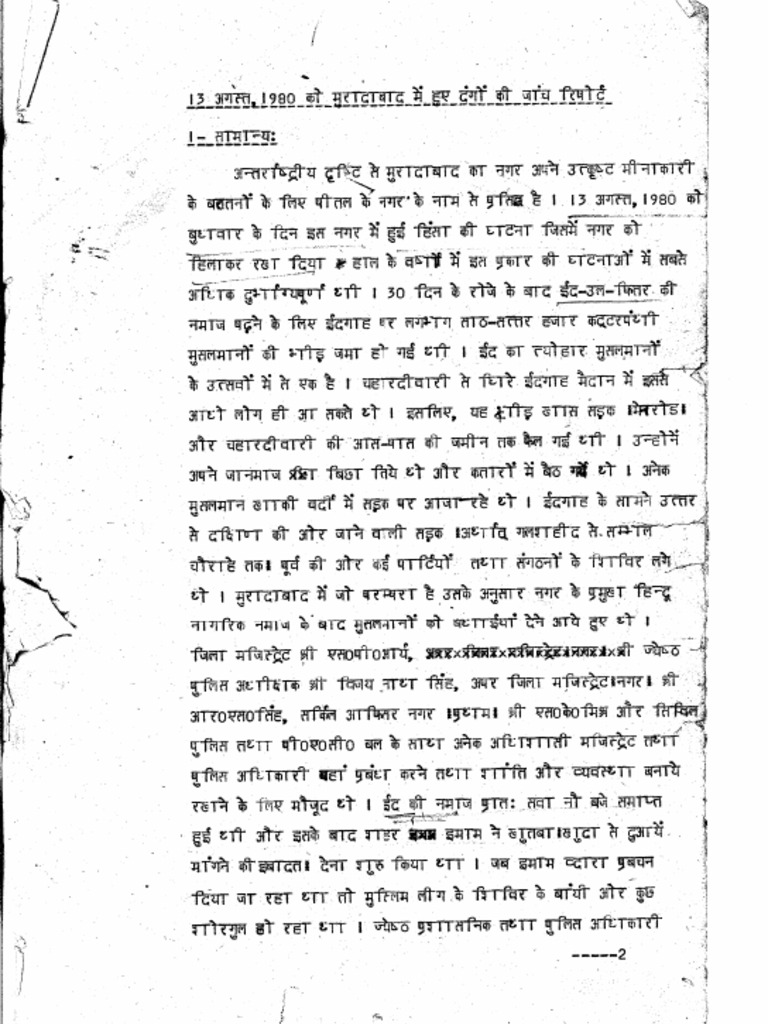 13 अगस्त, 1980 को मुरादाबाद में हुए दंगों की जांच रिपोर्ट
1- सामान्य:
अन्तर्राष्ट्रीय दृष्टि से मुरादाबाद का नगर अपने उत्कृष्ट मीनाकारी
के बतनों के लिए पीतल के नगर के नाम से प्रसिद्ध है । 13 अगस्त, 1980 को
बुधवार के दिन इस नगर में हुई हिंसा की घटना जिसमें नगर को
हिलाकर रख दिया हाल के वर्षों में इस प्रकार की घटनाओं में सबसे
अधिक दुर्भाग्यपूर्ण थी । 30 दिन के रोजे के बाद ईद-उल-फितर की
नमाज पढ़ने के लिए ईदगाह पर लगभग साठ-सत्तर हजार कट्टरपंथी
मुसलमानों की भीड़ जमा हो गई थी । ईद का त्योहार मुसलमानों
के उत्सवों में से एक है । चहारदीवारी से घिरे ईदगाह मैदान में इससे
आधे लोग ही आ सकते थे । इसलिए, यह भीड़ खास सड़क ।मेनरोड।
और चहारदीवारी की आस-पास की जमीन तक फैल गई थी । उन्होंने
अपने जानमाज बिछा लिये थे और कतारों में बैठ गये थे । अनेक
मुसलमान खाकी वर्दी में सड़क पर आजा रहे थे । ईदगाह के सामने उत्तर
से दक्षिण की ओर जाने वाली सड़क ।अर्थात् गलशहीद से सम्भल
चौराहे तक। पूर्व की ओर कई पार्टियों तथा संगठनों के शिविर लगे
थे । मुरादाबाद में जो परम्परा है उसके अनुसार नगर के प्रमुख हिन्दू
नागरिक नमाज के बाद मुसलमानों को बधाईयां देने आये हुए थे ।
जिला मजिस्ट्रेट श्री एस0पी0आर्य, ज्येष्ठ
पुलिस अधीक्षक श्री विजय नाथ सिंह, अपर जिला मजिस्ट्रेट।नगर। श्री
आर0एस0सिंह, सर्किल आफिसर नगर ।प्रथम। श्री एस0के0मिश्र और सिविल
पुलिस तथा पी0ए0सी0 बल के साथ अनेक अधिशासी मजिस्ट्रेट तथा
पुलिस अधिकारी वहां प्रबंध करने तथा शांति और व्यवस्था बनाये
रखने के लिए मौजूद थे । ईद की नमाज प्रात: सवा नौ बजे समाप्त
हुई थी और इसके बाद शहर इमाम ने खुतबा।खुदा से दुआयें
मांगने की इबादत। देना शुरु किया था । जब इमाम द्वारा प्रबचन
दिया जा रहा था तो मुस्लिम लीग के शिविर के बांयी ओर कुछ
शोरगुल हो रहा था । ज्येष्ठ प्रशासनिक तथा पुलिस अधिकारी
-----2